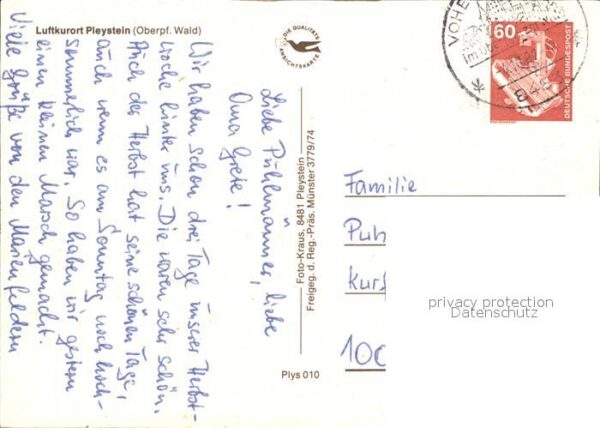 Luftkurort Pleystein (Oberpf. Wald)
DIE QUALITÄTS
ANSICHTSKARTE
Liebe Pühlmänner, liebe
Oma Grete!
Wir haben schon drei Tage unserer Herbst-
woche hinter uns. Die waren sehr schön.
Auch der Herbst hat seine schönen Tage,
auch wenn es am Sonntag noch hoch-
sommerlich war. So haben wir gestern
einen kleinen Marsch gemacht.
Viele Grüße von den Marienfeldern
Foto-Kraus, 8481 Pleystein
Freigeg. d. Reg.-Präs. Münster 3779/74
Plys 010
VOHE
60
DEUTSCHE BUNDESPOST
Familie
Kurf
100
privacy protection
Datenschutz